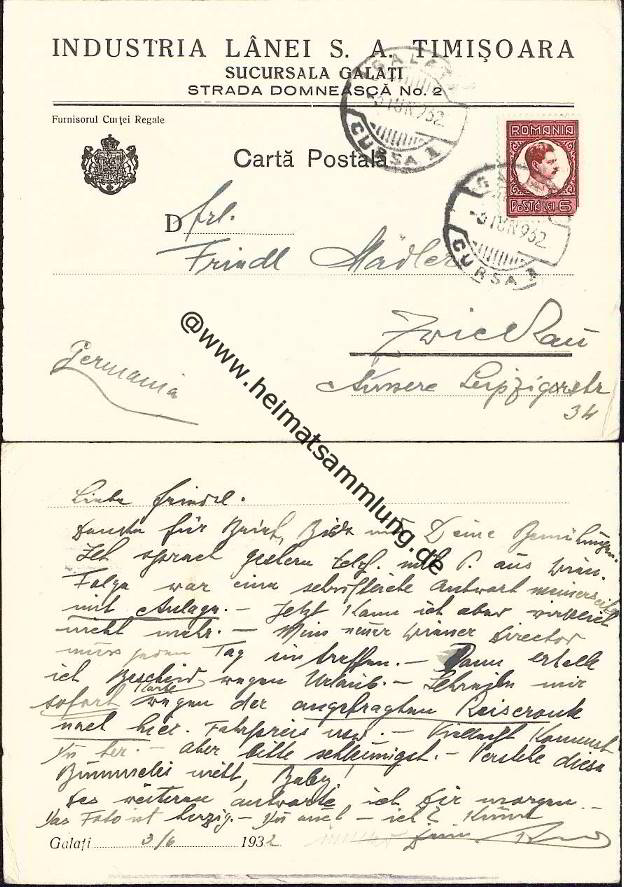 INDUSTRIA LÂNEI S. A. TIMIȘOARA
SUCURSALA GALAȚI
STRADA DOMNEASCĂ No. 2
Furnisorul Curței Regale
Cartă Postală
GALAȚI
-3 IUN 932
CURSA 1
ROMANIA
POSTA LEI 6
-3 IUN 932
CURSA 1
D frl.
Friedl Mädler
Zwickau
Germania
Äussere Leipzigerstr
34
@www.heimatsammlung.de
Liebe Friedel.
Danke für Brief, Bild und Deine Bemühungen
Ich sprach gestern telef. mit P. aus Wien.
Folge war eine schriftliche Antwort meinerseits
mit Anlage. - Jetzt kann ich aber
nicht mehr. - Mein neuer Wiener Director
muss jeden Tag eintreffen. - Dann erteile
ich Bescheid wegen Urlaub. - Schreibe mir
sofort Karte wegen der angefragten Reiseroute
nach hier. Fahrpreis usw. - Vielleicht kommst
Du her. - aber bitte schleunigst. - Verstehe diese
nicht, Baby!
Des weiteren antworte ich Dir morgen. -
Das Foto ist herzig. - Du auch - ich?
Galați 3/6 1932